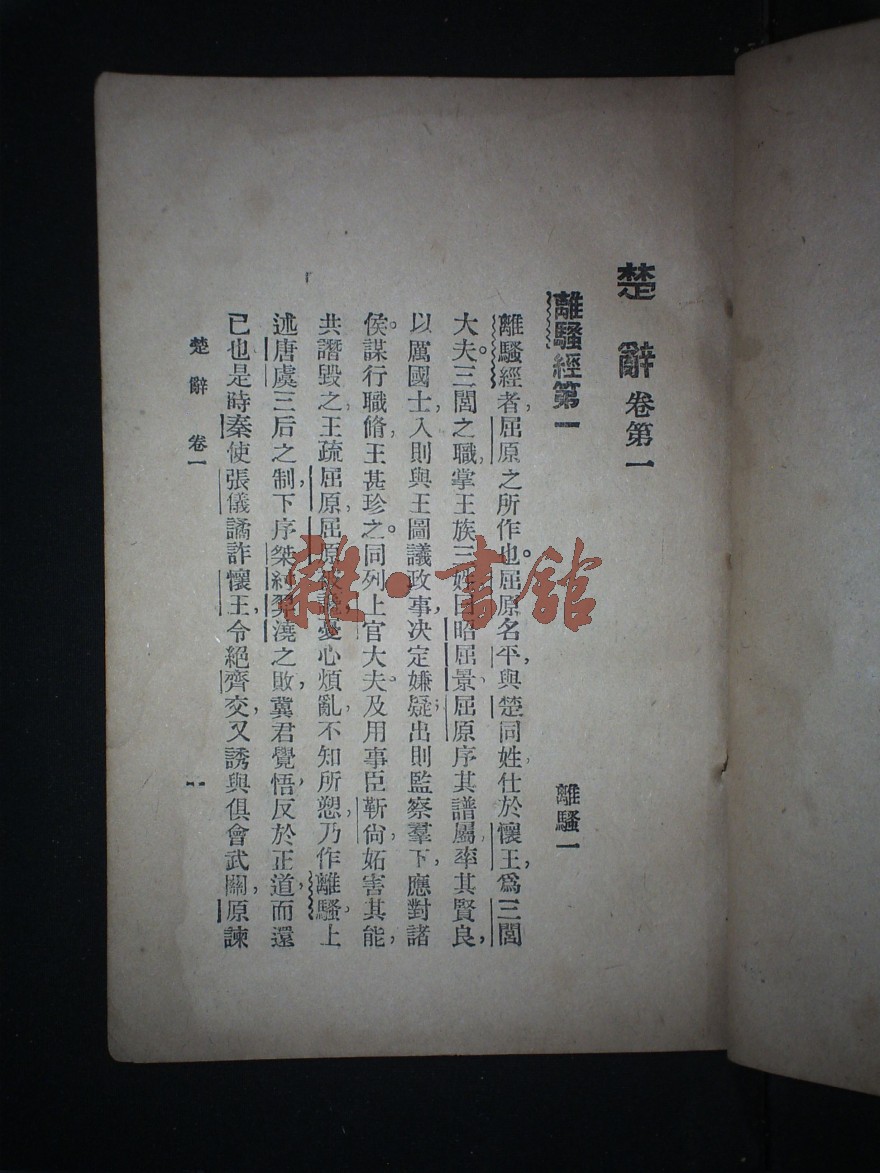 楚辭卷第一
離騷經第一 離騷一
離騷經者,屈原之所作也。屈原名平,與楚同姓,仕於懷王,爲三閭
大夫。三閭之職,掌王族三姓,曰昭屈景。屈原序其譜屬,率其賢良,
以厲國士,入則與王圖議政事,决定嫌疑;出則監察羣下,應對諸
侯。謀行職脩,王甚珍之。同列上官大夫及用事臣靳尙妬害其能,
共譖毀之,王疏屈原。屈原憂心煩亂,不知所愬,乃作離騷,上
述唐虞三后之制,下序桀紂羿澆之敗,冀君覺悟,反於正道,而還
己也。是時秦使張儀譎詐懷王,令絕齊交,又誘與俱會武關,原諫
楚辭 卷一 一
雜·書館